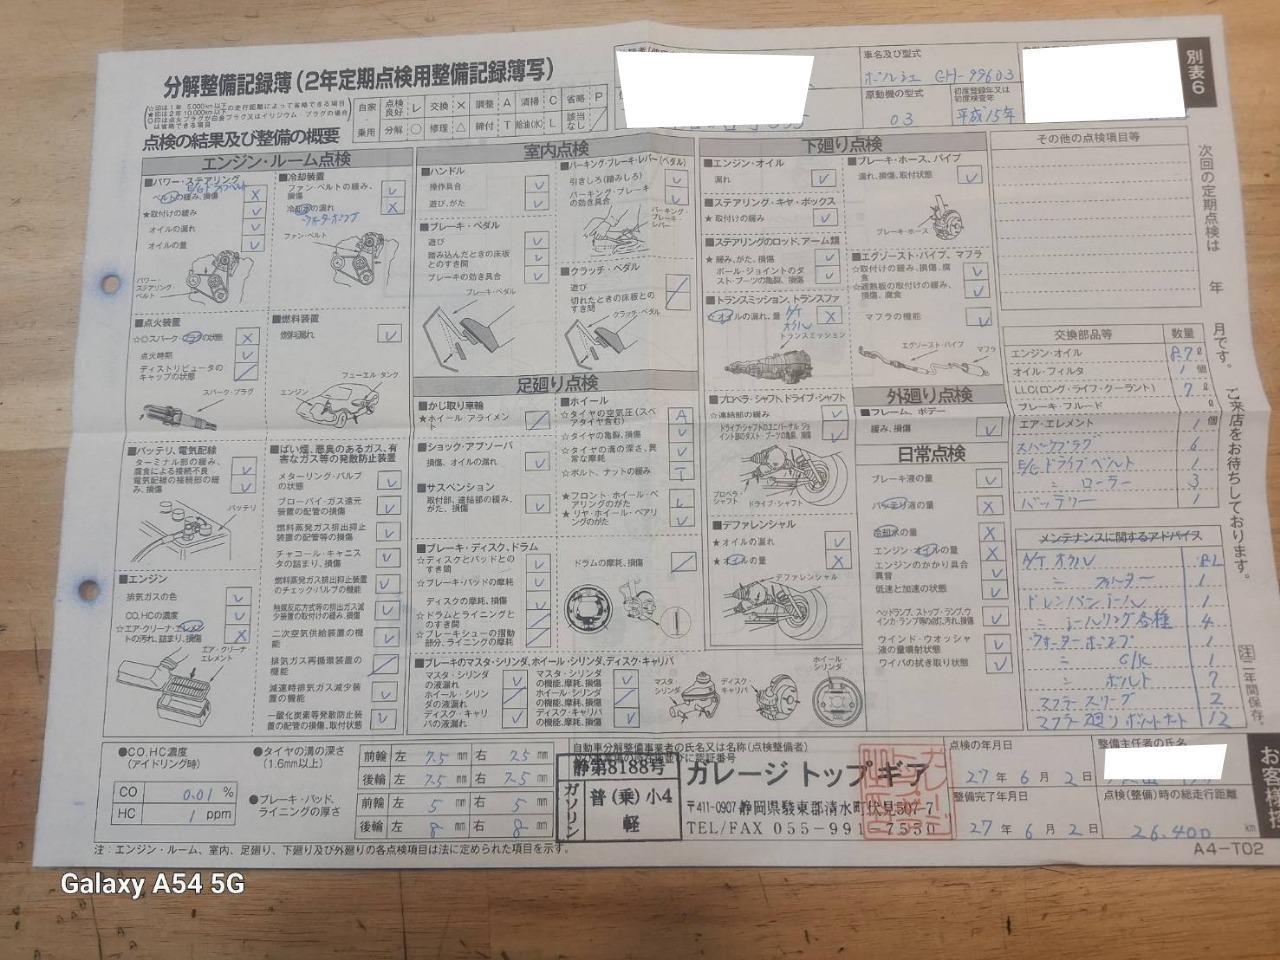 分解整備記録簿(2年定期点検用整備記録簿写)
車名及び型式
ポルシェ GH-99603
原動機の型式
03
初度登録年又は
初度検査年
平成15年
別表6
☆印は1年 5,000km以下の走行距離によって省略できる項目
★印は2年 10,000km以下の
自家
乗用
点検良好 レ 交換 × 調整 A 清掃 C 省略 P
分解 ○ 修理 △ 締付 T 給油(水) L 該当なし ／
点検の結果及び整備の概要
エンジン・ルーム点検
■パワー・ステアリング
E/Gドライブベルト
ベルトの緩み、損傷 ×
★取付けの緩み レ
オイルの漏れ レ
オイルの量 レ
パワー・ステアリング・ベルト
■冷却装置
ファン・ベルトの緩み、損傷 レ
冷却水の漏れ ×
ウォーターポンプ
ファン・ベルト
■点火装置
☆◎スパーク・プラグの状態 ×
点火時期 レ
ディストリビュータのキャップの状態 ／
スパーク・プラグ
■燃料装置
燃料漏れ レ
フューエル・タンク
エンジン
■バッテリ、電気配線
ターミナル部の緩み、腐食による接続不良 レ
電気配線の接続部の緩み、損傷 レ
バッテリ
■ばい煙、悪臭のあるガス、有害なガス等の発散防止装置
メターリング・バルブの状態 レ
ブローバイ・ガス還元装置の配管の損傷 レ
燃料蒸発ガス排出抑止装置の配管等の損傷 レ
チャコール・キャニスタの詰まり、損傷 レ
燃料蒸発ガス排出抑止装置のチェック・バルブの機能 レ
触媒反応方式等の排出ガス減少装置の取付けの緩み、損傷 レ
二次空気供給装置の機能 レ
排気ガス再循環装置の機能 ／
減速時排気ガス減少装置の機能 レ
一酸化炭素等発散防止装置の配管の損傷、取付状態 レ
■エンジン
排気ガスの色 レ
CO,HCの濃度 レ
☆エア・クリーナ・エレメントの汚れ、詰まり、損傷 ×
エア・クリーナ・エレメント
室内点検
■ハンドル
操作具合 レ
遊び、がた レ
■ブレーキ・ペダル
遊び レ
踏み込んだときの床板とのすき間 レ
ブレーキの効き具合 レ
ブレーキ・ペダル
■パーキング・ブレーキ・レバー(ペダル)
引きしろ(踏みしろ) レ
パーキング・ブレーキの効き具合 レ
パーキング・ブレーキ・レバー
■クラッチ・ペダル
遊び
切れたときの床板とのすき間 ／
クラッチ・ペダル
足廻り点検
■かじ取り車輪
★ホイール・アライメント ／
■ショック・アブソーバ
損傷、オイルの漏れ レ
■サスペンション
取付部、連結部の緩み、がた、損傷 レ
■ホイール
☆タイヤの空気圧(スペアタイヤ含む) A
☆タイヤの亀裂、損傷 レ
☆タイヤの溝の深さ、異常な摩耗 レ
☆ボルト、ナットの緩み T
★フロント・ホイール・ベアリングのがた
★リヤ・ホイール・ベアリングのがた レ
■ブレーキ・ディスク、ドラム
☆ディスクとパッドとのすき間 レ
☆ブレーキ・パッドの摩耗 レ
ディスクの摩耗、損傷 レ
☆ドラムとライニングとのすき間 ／
☆ブレーキシューの摺動部分、ライニングの摩耗 ／
ドラムの摩耗、損傷 ／
■ブレーキのマスタ・シリンダ、ホイール・シリンダ、ディスク・キャリパ
マスタ・シリンダの液漏れ レ
ホイール・シリンダの液漏れ ／
ディスク・キャリパの液漏れ レ
マスタ・シリンダの機能、摩耗、損傷 レ
ホイール・シリンダの機能、摩耗、損傷 ／
ディスク・キャリパの機能、摩耗、損傷 レ
マスタ・シリンダ
ディスク・キャリパ
ホイール・シリンダ
下廻り点検
■エンジン・オイル
漏れ レ
■ステアリング・ギヤ・ボックス
★取付けの緩み レ
■ステアリングのロッド、アーム類
★緩み、がた、損傷 レ
ボール・ジョイントのダスト・ブーツの亀裂、損傷 レ
■トランスミッション、トランスファ
☆オイルの漏れ、量 A/Tオイル ×
トランスミッション
■プロペラ・シャフト、ドライブ・シャフト
☆連結部の緩み レ
ドライブ・シャフトのユニバーサル・ジョイント部のダスト・ブーツの亀裂、損傷 レ
プロペラ・シャフト
ドライブ・シャフト
■デファレンシャル
★オイルの漏れ レ
★オイルの量 ×
デファレンシャル
■ブレーキ・ホース、パイプ
漏れ、損傷、取付状態 レ
ブレーキ・ホース
■エグゾースト・パイプ、マフラ
☆取付けの緩み、損傷、腐食 レ
☆遮熱板の取付けの緩み、損傷、腐食 レ
マフラの機能 レ
エグゾースト・パイプ
マフラ
外廻り点検
■フレーム、ボデー
緩み、損傷 レ
日常点検
ブレーキ液の量 レ
バッテリ液の量 ×
冷却水の量 ×
エンジン・オイルの量 ×
エンジンのかかり具合
異音 レ
低速と加速の状態 レ
ヘッドランプ、ストップ・ランプ、ウインカ・ランプ等の点灯、汚れ、損傷 レ
ウインド・ウォッシャ液の量噴射状態 レ
ワイパの拭き取り状態 レ
その他の点検項目等
交換部品等 数量
エンジン・オイル 8.7ℓ
オイル・フィルタ 1個
LLC(ロング・ライフ・クーラント) 7ℓ
ブレーキ・フルード ℓ
エア・エレメント 1個
スパークプラグ 6
E/Gドライブベルト 1
〃 ローラー 3
バッテリー 1
メンテナンスに関するアドバイス
A/Tオイル 8L
〃 フィルター 1
ドレンパンシール 1
〃 シールリング各種 4
ウォーターポンプ 1
〃 G/K 1
〃 ボルト 7
マフラースリーブ 2
マフラー廻りボルトナット 12
次回の定期点検は 年 月です。ご来店をお待ちしております。
注 二年間保存。
●CO,HC濃度
(アイドリング時)
CO 0.01 %
HC 1 ppm
●タイヤの溝の深さ
(1.6mm以上)
前輪 左 7.5 mm 右 7.5 mm
後輪 左 7.5 mm 右 7.5 mm
●ブレーキ・パッド、ライニングの厚さ
前輪 左 5 mm 右 5 mm
後輪 左 8 mm 右 8 mm
自動車分解整備事業者の氏名又は名称(点検整備者)
静第8188号
ガソリン
普(乗)小4
軽
ガレージ トップギア
〒411-0907 静岡県駿東郡清水町伏見507-7
TEL/FAX 055-991-7550
点検の年月日
27年 6月 2日
整備完了年月日
27年 6月 2日
整備主任者の氏名
点検(整備)時の総走行距離
26,400 km
お客様控
注:エンジン・ルーム、室内、足廻り、下廻り及び外廻りの各点検項目は法に定められた項目を示す。
A4-T02
Galaxy A54 5G